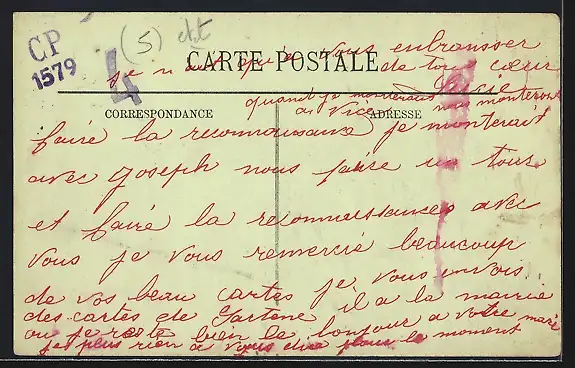 CP
1579
(5)
4
CARTE POSTALE
je n'ai qu'a vous embrasser
de tout cœur
quand je monterais nous monterons
a Nice
CORRESPONDANCE
ADRESSE
faire la reconnaissance je monterait
avec Joseph nous faire un tour
et faire la reconnaissances avec
vous je vous remercie beaucoup
de vos beau cartes je vous envois
des cartes de il a la mairie
ou je reste bien le bonjour a votre mari
je plus rien a vous dire pour le moment